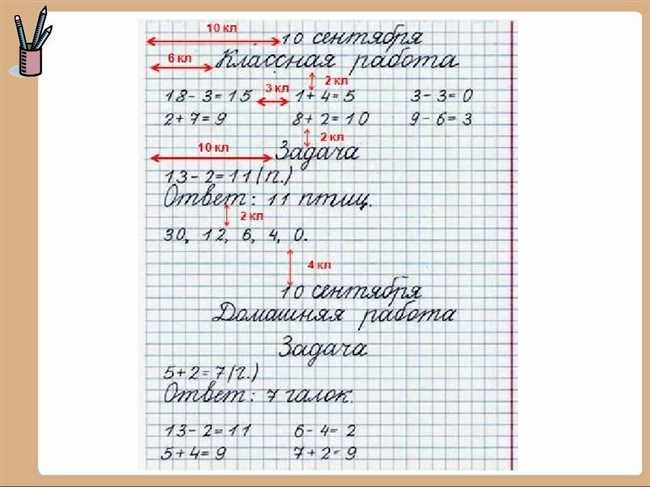 10 кл
10 сентября
6 кл
Классная работа
2 кл
3 кл
18-3=15 1+4=5 3-3=0
2+7=9 8+2=10 9-6=3
2 кл
10 кл
Задача
13-2=11(п.)
Ответ: 11 птиц.
2 кл
30, 12, 6, 4, 0.
4 кл
10 сентября
Домашняя работа
Задача
5+2=7(г.)
Ответ: 7 галок.
13-2=11 6-4=2
5+4=9 7+2=9